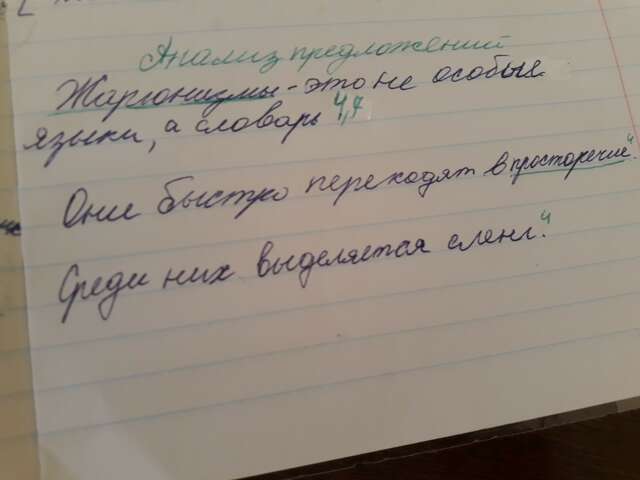 Анализ предложений
Жаргонизмы - это не особые
языки, а словарь 4,7
Они быстро переходят в просторечие 4.
Среди них выделяется сленг. 4